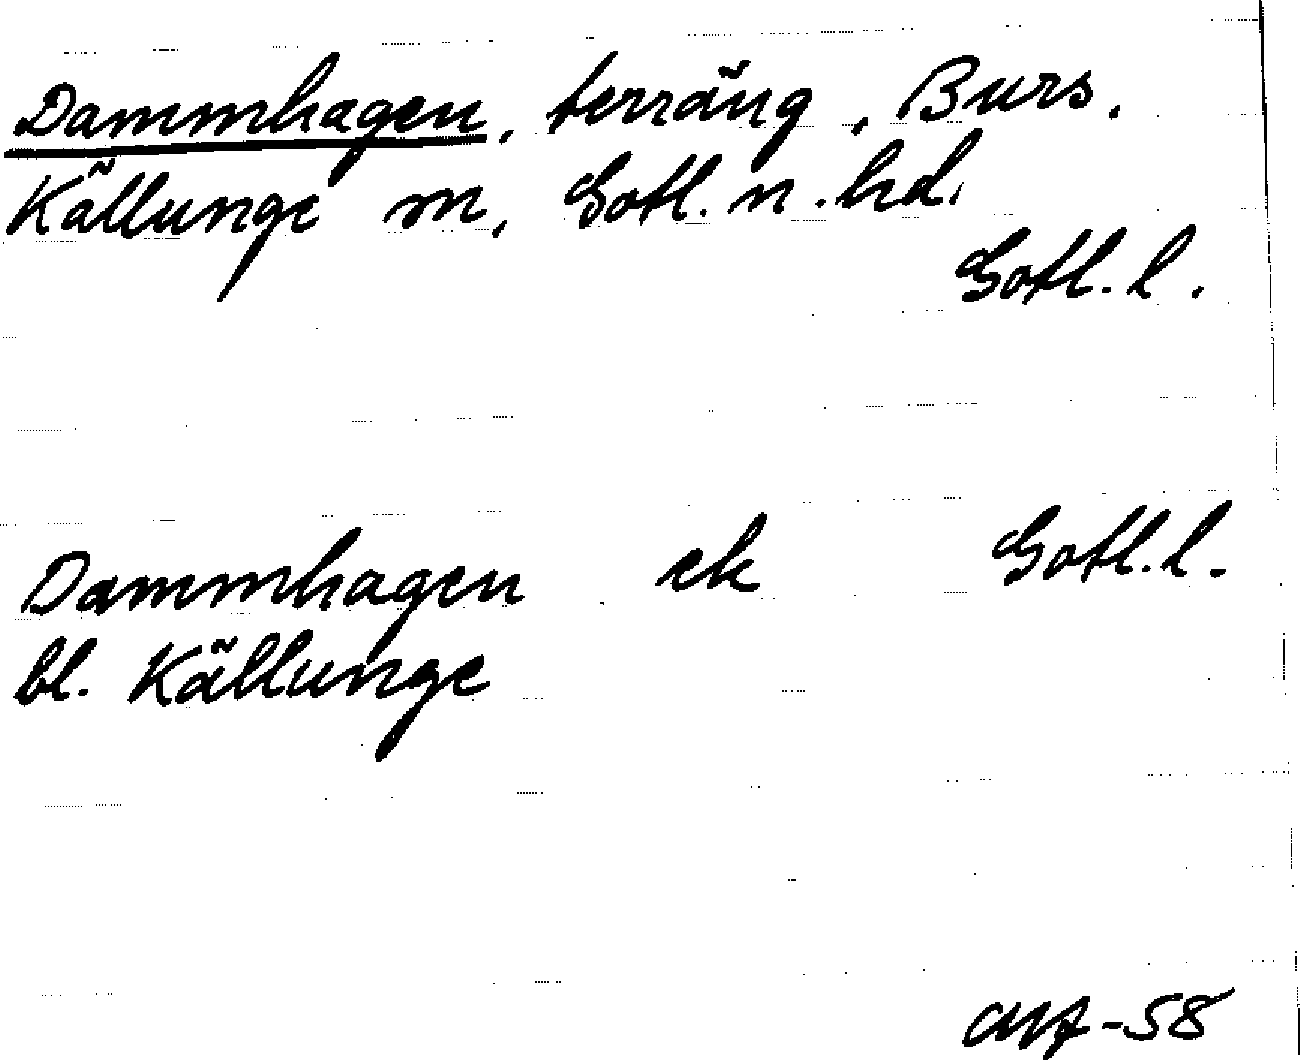 Dammhagen, terräng, Burs.
Källunge sn, Gotl. n. hd.
Gotl. l.
Dammhagen ek Gotl. l.
bl. Källunge
-58